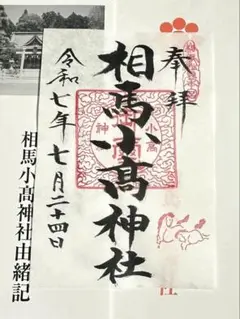 奉拝
相馬小高神社
令和七年七月二十四日
相馬小髙神社由緒記